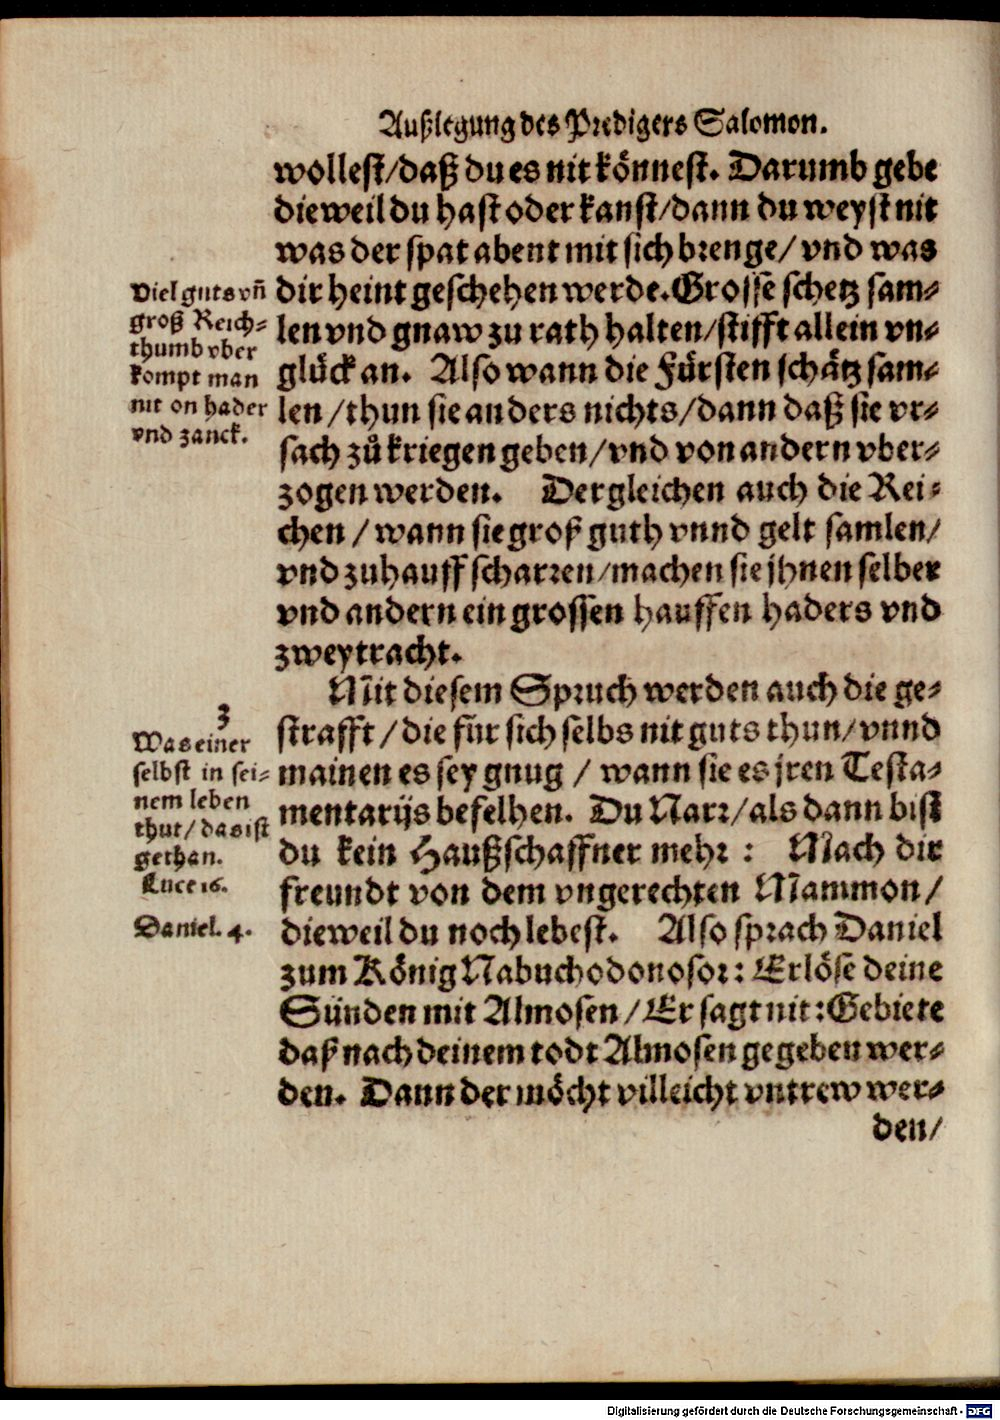 Außlegung des Predigers Salomon.
wollest/daß du es nit könnest. Darumb gebe
dieweil du hast oder kanst/dann du weyst nit
was der spat abent mit sich brenge/ vnd was
dir heint geschehen werde. Grosse schetz sam-
len vnd gnaw zu rath halten/stifft allein vn-
glück an. Also wann die Fürsten schätz sam-
len/thun sie anders nichts/dann daß sie vr-
sach zů kriegen geben/vnd von andern vber-
zogen werden. Dergleichen auch die Rei-
chen/wann sie groß guth vnnd gelt samlen/
vnd zuhauff scharren/machen sie jhnen selber
vnd andern ein grossen hauffen haders vnd
zweytracht.
Viel guts vñ
groß Reich-
thumb vber
kompt man
nit on hader
vnd zanck.
Mit diesem Spruch werden auch die ge-
strafft/die für sich selbs nit guts thun/vnnd
mainen es sey gnug/ wann sie es jren Testa-
mentarijs befelhen. Du Narr/als dann bist
du kein Haußschaffner mehr: Mach dir
freundt von dem vngerechten Mammon/
dieweil du noch lebest. Also sprach Daniel
zum König Nabuchodonosor: Erlöse deine
Sünden mit Almosen/Er sagt nit: Gebiete
daß nach deinem todt Almosen gegeben wer-
den. Dann der möcht villeicht vntrew wer-
den/
3
Was einer
selbst in sei-
nem leben
thut/das ist
gethan.
Luce 16.
Daniel. 4.
Digitalisierung gefördert durch die Deutsche Forschungsgemeinschaft - DFG